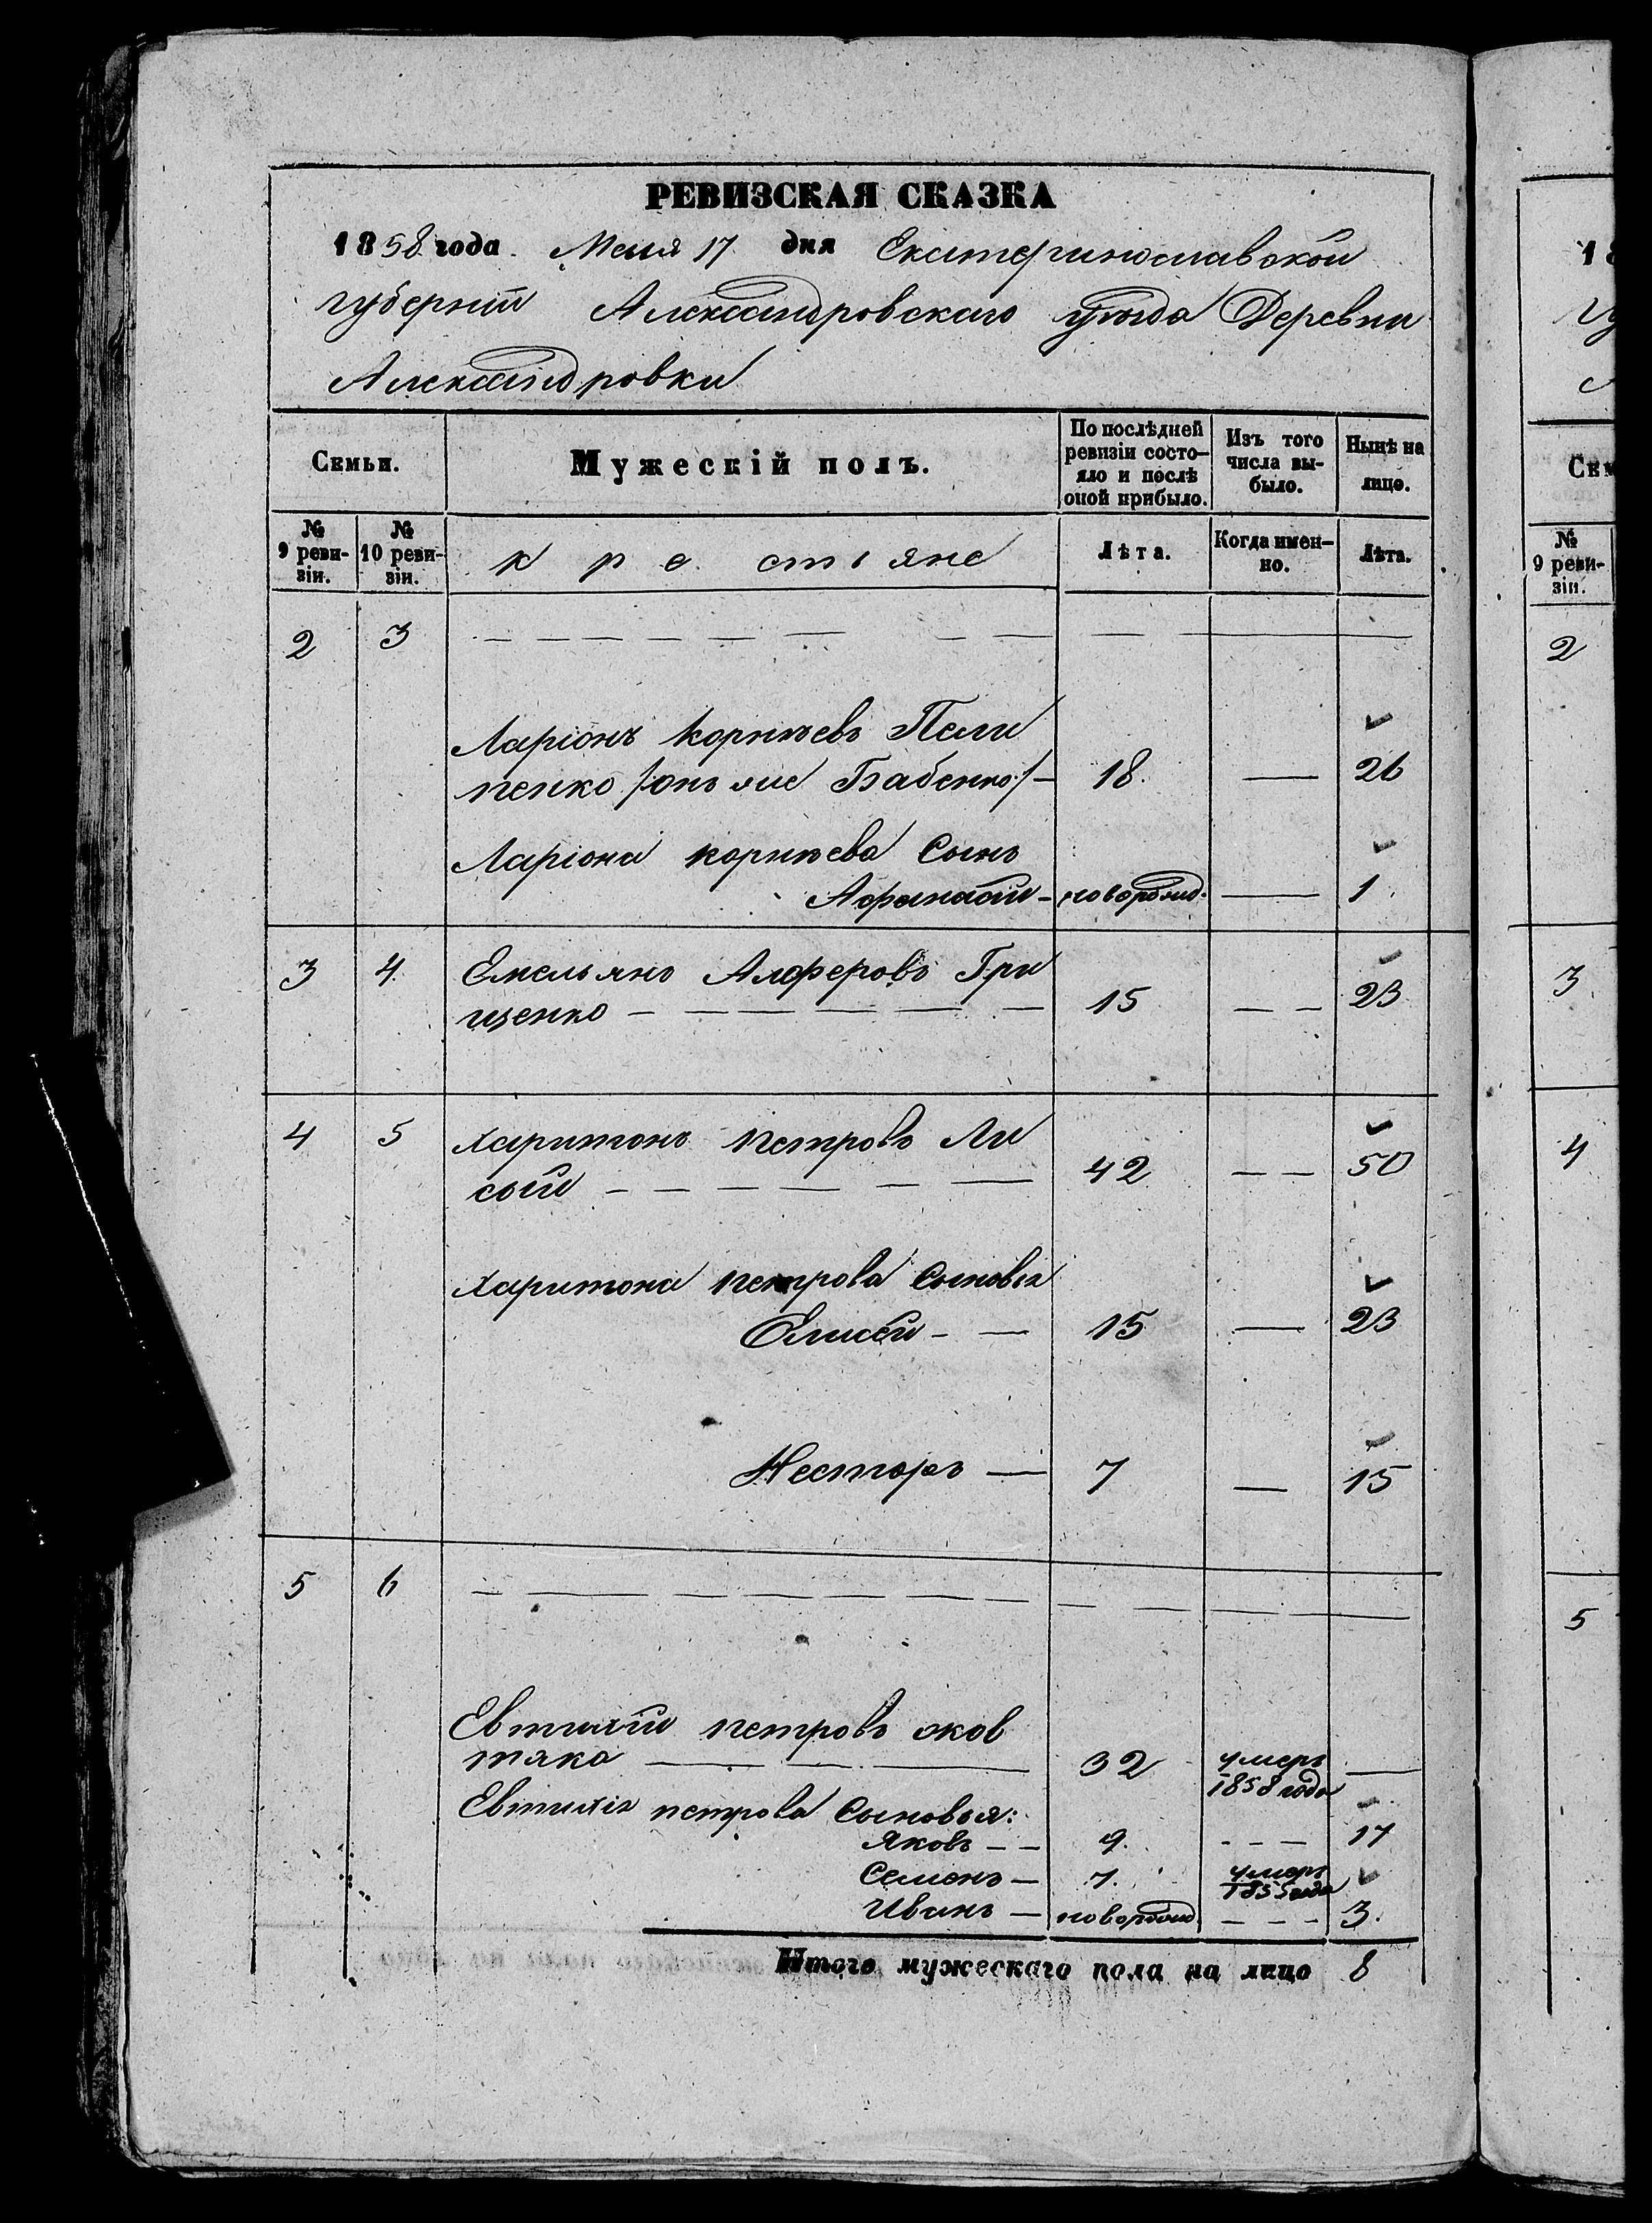 РЕВИЗСКАЯ СКАЗКА
1858 года. Мая 17 дня Екатеринославской
губерніи Александровскаго уѣзда Деревни
Александровки
Семьи.
Мужескій полъ.
По послѣдней
ревизіи состо-
яло и послѣ
оной прибыло.
Изъ того
числа вы-
было.
Нынѣ на
лицо.
№
9 реви-
зіи.
№
10 реви-
зіи.
крестьяне
Лѣта.
Когда имен-
но.
Лѣта.
2 3
Ларіонъ Корнѣевъ Пели
пенко /онъ же Бабенко/ 18. 26
Ларіона Корнѣева Сынъ
Афанасій новорожд. 1
3 4. Емельянъ Алферовъ Гри
щенко 15 23
4 5 Харитонъ Петровъ Ли
сый 42 50
Харитона Петрова Сыновья
Елисей 15 23
Несторъ 7 15
5 6
Евтихій Петровъ
32 умеръ
1858 года
Евтихія Петрова Сыновья:
Яковъ 9. 17
Семенъ 7. умеръ
1855 года
Иванъ новорожд. 3.
Итого мужескаго пола на лицо 8
18
Сем
№
9 реви-
зіи.
2
3
4
5